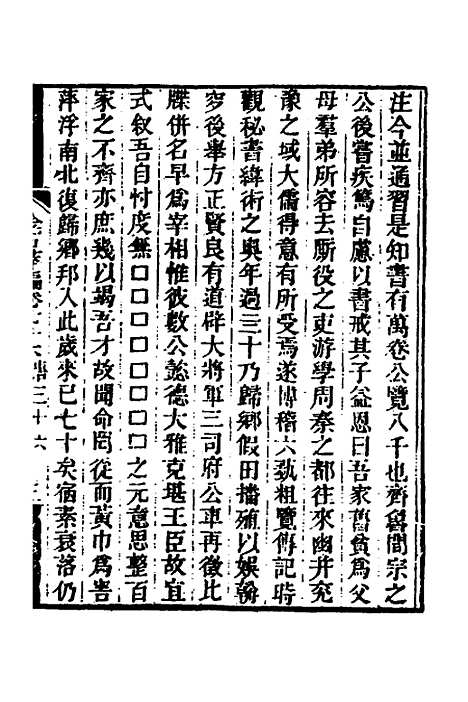 注今並通習是知書有萬卷公覽八千也齊魯間宗之
公後嘗疾篤自慮以書戒其子益恩曰吾家舊貧爲父
母羣弟所容去厮役之吏游學周秦之都往來幽并兖
豫之域大儒得意有所受焉遂博稽六埶粗覽傳記時
觀祕書緯術之奧年過三十乃歸鄉假田播殖以娛朝
夕後舉方正賢良有道辟大將軍三司府公車再徵比
牒併名早爲宰相惟彼數公懿德大雅克堪王臣故宜
式叙吾自忖度無口口口口口口口之元意思整百
家之不齊亦庶幾以竭吾才故聞命罔從而黃巾爲害
萍浮南北復歸鄉邦入此歲來已七十矣宿素衰落仍